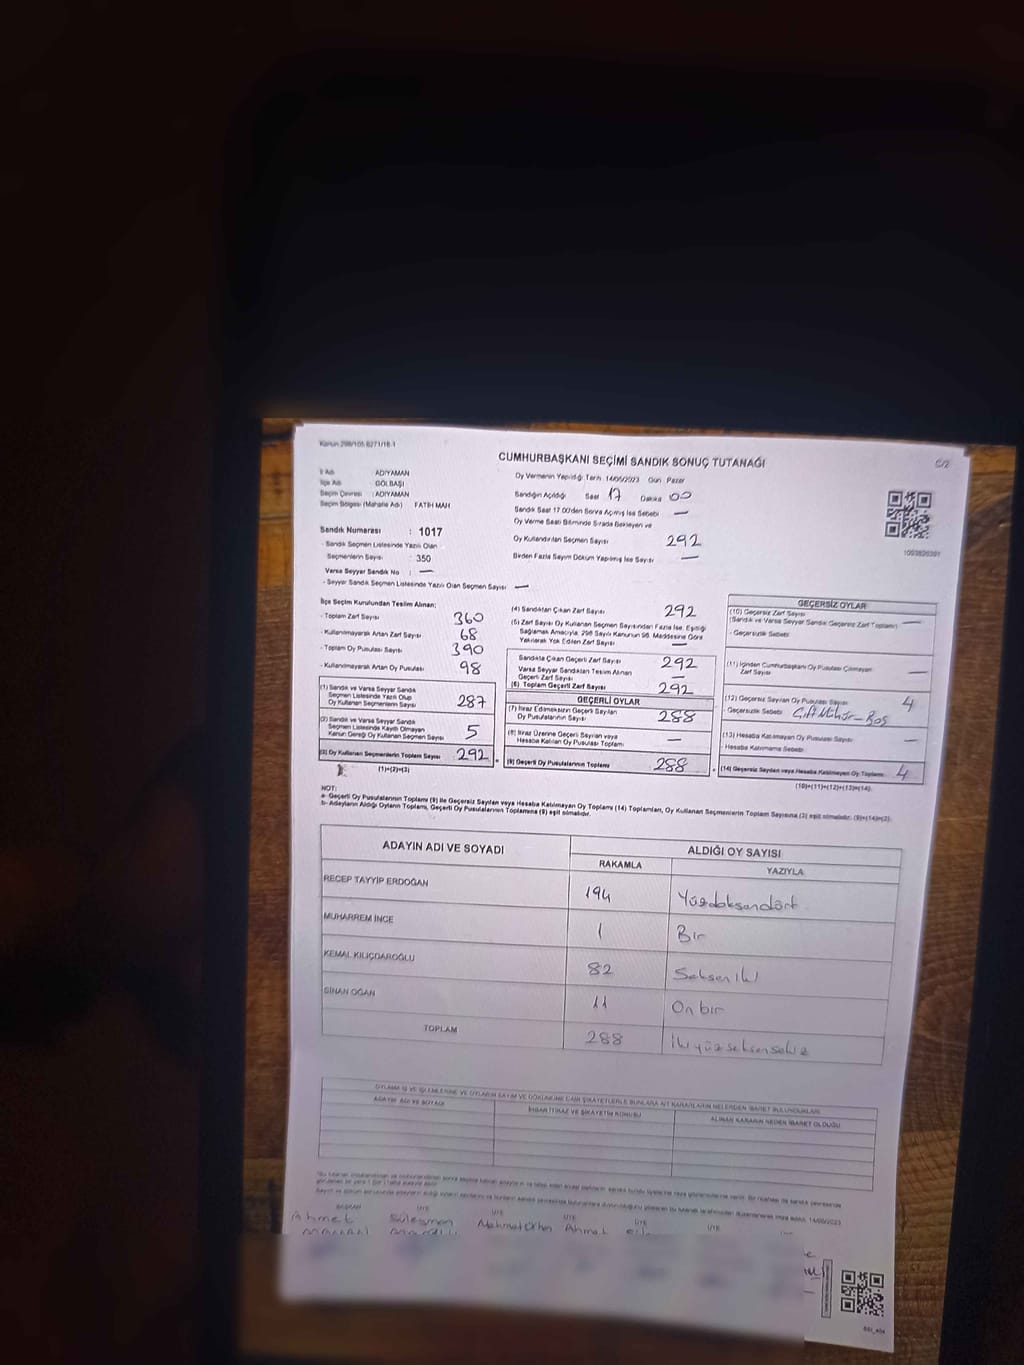 CUMHURBAŞKANI SEÇİMİ SANDIK SONUÇ TUTANAĞI
C/2
İl Adı : ADIYAMAN
İlçe Adı : GÖLBAŞI
Seçim Çevresi : ADIYAMAN
Seçim Bölgesi (Mahalle Adı) FATİH MAH.
Sandık Numarası : 1017
- Sandık Seçmen Listesinde Yazılı Olan
Seçmenlerin Sayısı : 350
Varsa Seyyar Sandık No : —
- Seyyar Sandık Seçmen Listesinde Yazılı Olan Seçmen Sayısı —
Oy Vermenin Yapıldığı Tarih 14/05/2023 Gün Pazar
Sandığın Açıldığı Saat 17 Dakika 00
Sandık Saat 17.00'den Sonra Açılmış İse Sebebi —
Oy Verme Saati Bitiminde Sırada Bekleyen ve
Oy Kullandırılan Seçmen Sayısı 292
Birden Fazla Sayım Döküm Yapılmış İse Sayısı —
İlçe Seçim Kurulundan Teslim Alınan;
- Toplam Zarf Sayısı 360
- Kullanılmayarak Artan Zarf Sayısı 68
- Toplam Oy Pusulası Sayısı 390
- Kullanılmayarak Artan Oy Pusulası 98
(1) Sandık ve Varsa Seyyar Sandık
Seçmen Listesinde Yazılı Olup
Oy Kullanan Seçmenlerin Sayısı 287
(2) Sandık ve Varsa Seyyar Sandık
Seçmen Listesinde Kayıtlı Olmayan
Kanun Gereği Oy Kullanan Seçmen Sayısı 5
(3) Oy Kullanan Seçmenlerin Toplam Sayısı 292
(1)+(2)=(3)
(4) Sandıktan Çıkan Zarf Sayısı 292
(5) Zarf Sayısı Oy Kullanan Seçmen Sayısından Fazla İse, Eşitliği
Sağlamak Amacıyla, 298 Sayılı Kanunun 98. Maddesine Göre
Yakılarak Yok Edilen Zarf Sayısı —
Sandıkta Çıkan Geçerli Zarf Sayısı 292
Varsa Seyyar Sandıktan Teslim Alınan
Geçerli Zarf Sayısı —
(6) Toplam Geçerli Zarf Sayısı 292
GEÇERLİ OYLAR
(7) İtiraz Edilmeksizin Geçerli Sayılan
Oy Pusulalarının Sayısı 288
(8) İtiraz Üzerine Geçerli Sayılan veya
Hesaba Katılan Oy Pusulası Toplamı —
(9) Geçerli Oy Pusulalarının Toplamı 288
1003820391
GEÇERSİZ OYLAR
(10) Geçersiz Zarf Sayısı
(Sandık ve Varsa Seyyar Sandık Geçersiz Zarf Toplamı) —
- Geçersizlik Sebebi
(11) İçinden Cumhurbaşkanı Oy Pusulası Çıkmayan
Zarf Sayısı —
(12) Geçersiz Sayılan Oy Pusulası Sayısı 4
- Geçersizlik Sebebi Çift Mühür - Boş
(13) Hesaba Katılmayan Oy Pusulası Sayısı —
- Hesaba Katılmama Sebebi
(14) Geçersiz Sayılan veya Hesaba Katılmayan Oy Toplamı 4
(10)+(11)+(12)+(13)=(14)
NOT:
a- Geçerli Oy Pusulalarının Toplamı (9) ile Geçersiz Sayılan veya Hesaba Katılmayan Oy Toplamı (14) Toplamları, Oy Kullanan Seçmenlerin Toplam Sayısına (3) eşit olmalıdır. (9)+(14)=(3)
b- Adayların Aldığı Oyların Toplamı, Geçerli Oy Pusulalarının Toplamına (9) eşit olmalıdır.
ADAYIN ADI VE SOYADI ALDIĞI OY SAYISI
RAKAMLA YAZIYLA
RECEP TAYYİP ERDOĞAN 194 Yüzdoksandört
MUHARREM İNCE 1 Bir
KEMAL KILIÇDAROĞLU 82 Seksen iki
SİNAN OĞAN 11 On bir
TOPLAM 288 İki yüz seksen sekiz
ADAYIN ADI VE SOYADI İHBAR İTİRAZ VE ŞİKAYETİN KONUSU ALINAN KARARIN NEDEN İBARET OLDUĞU
BAŞKAN ÜYE ÜYE ÜYE ÜYE ÜYE
Ahmet Süleyman Ahmet